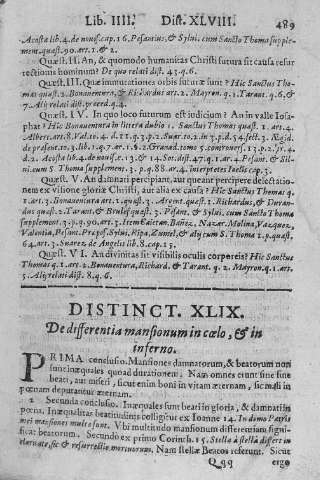 Lib. IIII. Dist. XLVIII. 489
Acosta lib. 4. de nouis. cap. 16. Pesantius, & Sylui. cum Sancto Thoma supplem-
ment. quæst. 90. art. 1. & 2.
Quæst. II. An, & quomodo humanitas Christi futura sit causa resur
rectionis hominum? De quo relati dist. 43. q. 6.
Quæst. III. Quæ immutationes orbis futuræ sunt? Hic Sanctus Tho-
mas quæst. 2. Bonauentura, & Richardus art. 2. Mayron. q. 1. Tarant. q. 6. &
7. Alij relati dist. præced. q. 4.
Quæst. IV. In quo loco futurum est iudicium? An in valle Iosa-
phat? Hic Bonauentura in litera dubio 1. Sanctus Thomas quæst. 1. art. 4.
Albert. art. 8.
de præsent.
d. 2. Acosta lib. 4. de nouis. c. 13. & 14. Sot. dist. 47. q. 1. art. 4. Pesant. & Sil-
ui. cum S. Thoma supplement. 3. p. q. 88. ar. 4. interpretes Ioelis cap. 3.
Quæst. V. An damnati percipiant, aut queant percipere delectatio-
nem ex visione gloriæ Christi, aut alia ex causa? Hic Sanctus Thomas q.
1. ar. 3. Bonauentura art. 1. quæst. 3. Argent. quæst. 3. Richardus, & Duran-
dus quæst. 2. Tarant. & Brulef. quæst. 3. Pesant. & Sylui. cum Sancto Thoma
supplement. 3. p. q. 90. art. 3. Item Caietan. Bañez, Nazar. Molina, Vazquez,
Valentia, Pesant. Præpos. Sylui. Ripa, Zumel, & alij cum S. Thoma 1. p. quæst.
64. art. 3. Suarez de Angelis lib. 8. cap. 13.
Quæst. VI. An diuinitas sit visibilis oculis corporeis? Hic Sanctus
Thomas q. 1. ar. 2. Bonauentura, Richard. & Tarant. q. 2. Mayron. q. 1. art.
5. Alij relati dist. 8. q. 6.
DISTINCT. XLIX.
De differentia mansionum in cœlo, & in
inferno.
PRIMA conclusio. Mansiones damnatorum, & beatorum non
sunt inæquales quoad durationem. Nam omnes erunt sine fine
beati, aut miseri, sicut enim boni in vitam æternam, sic mali in
pœnam deputantur æternam.
2 Secunda conclusio. Inæquales sunt beati in gloria, & damnati in
pœna. Inæqualitas beatitudinis colligitur ex Ioanne 14. In domo Patris
mei mansiones multæ sunt. Vbi multitudo mansionum differentiam signi-
ficat beatorum. Secundo ex primo Corinth. 15. Stella à stella differt in
claritate, sic & resurrectio mortuorum. Nam stellæ Beatos referunt. Sicut
Qqq ergo